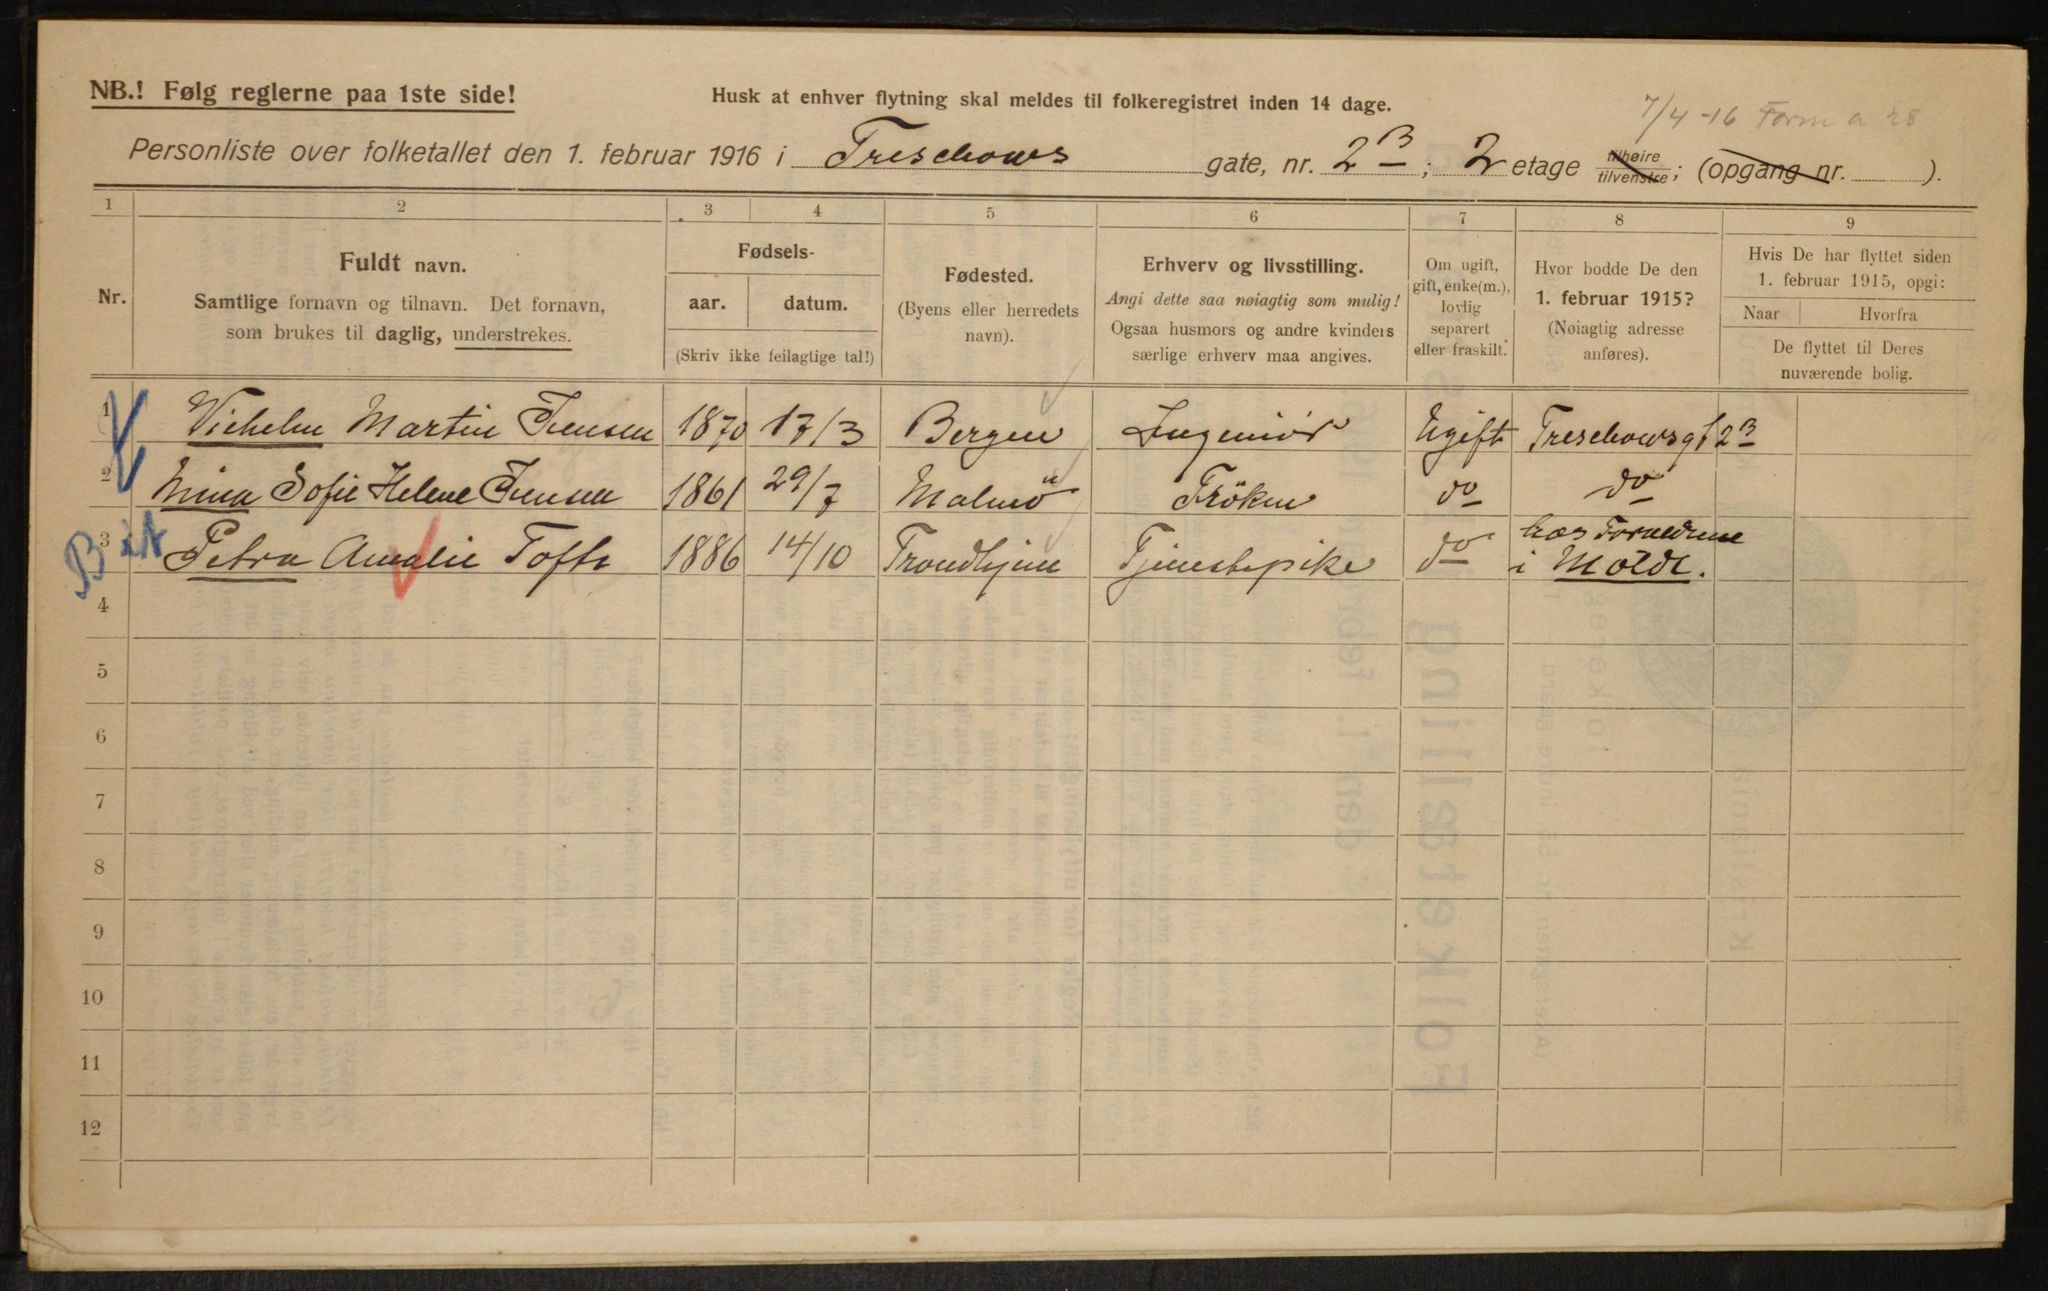 NB.! Følg reglerne paa 1ste side!
Husk at enhver flytning skal meldes til folkeregistret inden 14 dage.
7/4 -16 Form a 28
Personliste over folketallet den 1. februar 1916 i Treschows gate, nr. 2B; 2 etage tilhøire tilvenstre; (opgang nr. ).
1 2 3 4 5 6 7 8 9
Nr.
Fuldt navn.
Samtlige fornavn og tilnavn. Det fornavn,
som brukes til daglig, understrekes.
Fødsels-
aar. datum.
(Skriv ikke feilagtige tal!)
Fødested.
(Byens eller herredets
navn).
Erhverv og livsstilling.
Angi dette saa nøiagtig som mulig!
Ogsaa husmors og andre kvinders
særlige erhverv maa angives.
Om ugift,
gift, enke(m.),
lovlig
separert
eller fraskilt.
Hvor bodde De den
1. februar 1915?
(Nøiagtig adresse
anføres).
Hvis De har flyttet siden
1. februar 1915, opgi:
Naar Hvorfra
De flyttet til Deres
nuværende bolig.
1 Vilhelm Martin Iversen 1870 17/3 Bergen Ingeniör Ugift Treschowsgt 2B
2 Nina Sofie Helene Iversen 1861 29/7 Malmö Fröken do do
3 Petra Amalie Toft 1886 14/10 Trondhjem Tjenestepike do hos Foreldrene
i Molde.
4
5
6
7
8
9
10
11
12